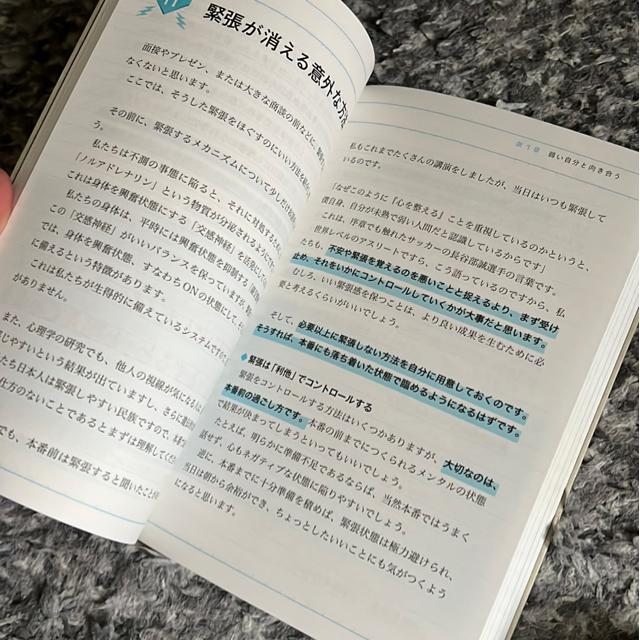 11
緊張が消える意外な方法
面接やプレゼン、または大きな商談の前などに、緊張し
なくないと思います。
ここでは、そうした緊張をほぐすのにいい方法を
その前に、緊張するメカニズムについて少しだけお
う。
私たちは不測の事態に陥ると、それに対処するため
「ノルアドレナリン」という物質が分泌されるようで
これは身体を興奮状態にする「交感神経」を活発にし
私たちの身体は、平時には興奮状態を抑制する「副
この「交感神経」がいいバランスを保っていますが、
では、身体を興奮状態、すなわちONの状態にして、
に備えるという特徴があります。
これは私たちが生得的に備えているシステムです
がありません。
また、心理学の研究でも、他人の視線が気にな
じやすいという結果が出ていますし、さらに
たち日本人は緊張しやすい民族ですので、
仕方のないことであるとまずは理解してくだ
でも、本番前は緊張すると聞いたこと
第1章 弱い自分と向き合う
私もこれまでたくさんの講演をしましたが、当日はいつも緊張して
いるのです。
「なぜこのように『心を整える』ことを重視しているのかというと、
僕自身、自分が未熟で弱い人間だと認識しているからです」
これは、序章でも触れたサッカーの長谷部誠選手の言葉です。
世界レベルのアスリートですら、こう語っているのですから、私
たちも、不安や緊張を覚えるのを悪いことと捉えるより、まず受け
止め、それをいかにコントロールしていくかが大事だと思います。
むしろ、いい緊張感を保つことは、より良い成果を生むために必
要と考えるくらいがいいでしょう。
そして、必要以上に緊張しない方法を自分に用意しておくのです。
そうすれば、本番にも落ち着いた状態で臨めるようになるはずです。
◆緊張は「利他」でコントロールする
緊張をコントロールする方法はいくつかありますが、大切なのは、
本番前の過ごし方です。本番の前までにつくられるメンタルの状態
で結果が決まってしまうといってもいいでしょう。
たとえば、明らかに準備不足であるならば、当然本番ではうまく
話せず、心もネガティブな状態に陥りやすいでしょう。
逆に、本番までに十分準備を積めば、緊張状態は極力避けられ、
当日は朝から余裕ができ、ちょっとしたいいことにも気がつくよう
になると思います。